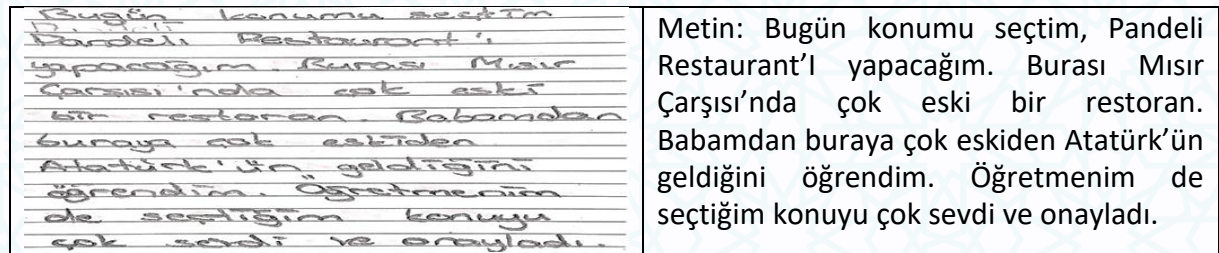 Bugün konumu seçtim
Pandeli Restaurant'ı
yapacağım. Burası Mısır
Çarşısı'nda çok eski
bir restoran. Babamdan
buraya çok eskiden
Atatürk'ün geldiğini
öğrendim. Öğretmenim
de seçtiğim konuyu
çok sevdi ve onayladı.
Metin: Bugün konumu seçtim, Pandeli
Restaurant'I yapacağım. Burası Mısır
Çarşısı'nda çok eski bir restoran.
Babamdan buraya çok eskiden Atatürk'ün
geldiğini öğrendim. Öğretmenim de
seçtiğim konuyu çok sevdi ve onayladı.